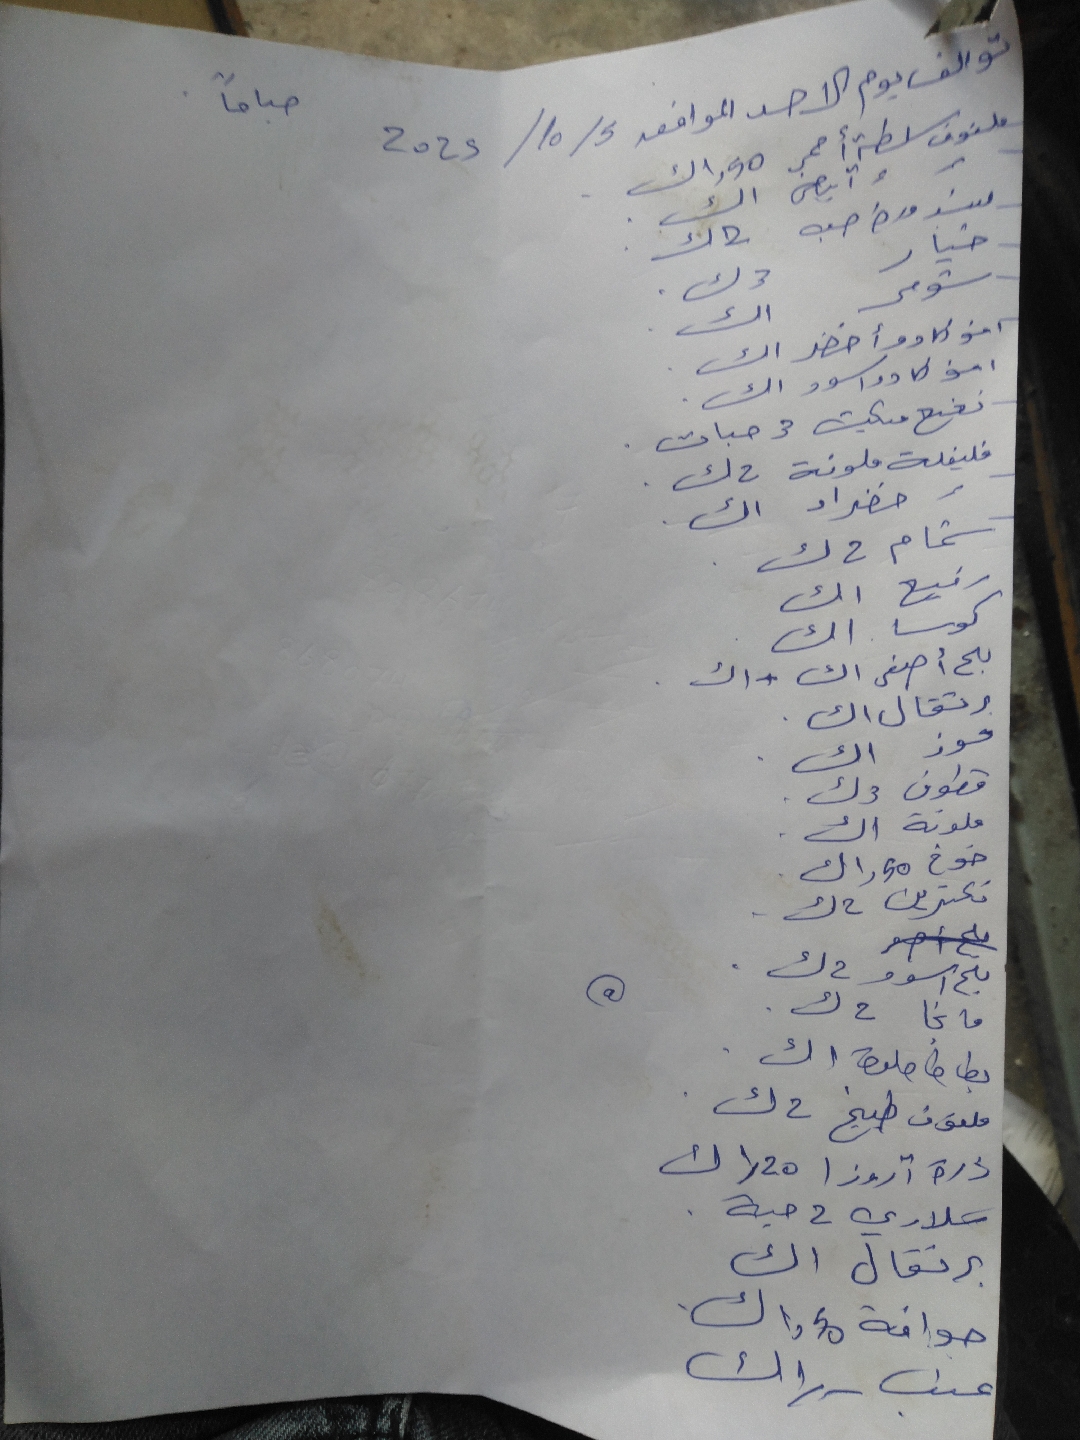 توالف يوم الاحد الموافق 5/10/2025 صباحاً
ملفوف سلطة أحمر 1,50ك
ء ء أبيض 1ك
بندورة حب 2ك
خيار 3ك
شومر 1ك
افوكادو أخضر 1ك
افوكادو اسود 1ك
نعنع مبكيت 3 حبات
فليفلة ملونة 2ك
ء خضراء 1ك
شمام 2ك
رفيع 1ك
كوسا 1ك
بلح أصفر 1ك + 1ك
برتقال 1ك
موز 1ك
قطوف 3ك
ملونة 1ك
خوخ 1,50ك
نكترين 2ك
بلح أصفر
بلح اسود 2ك
مانجا 2ك
بطاطا حلوة 1ك
ملفوف طبيخ 2ك
ذرة آروزا 1,20ك
سلاري 2 حبة
برتقال 1ك
جوافة 1,50ك
عنب 1ك